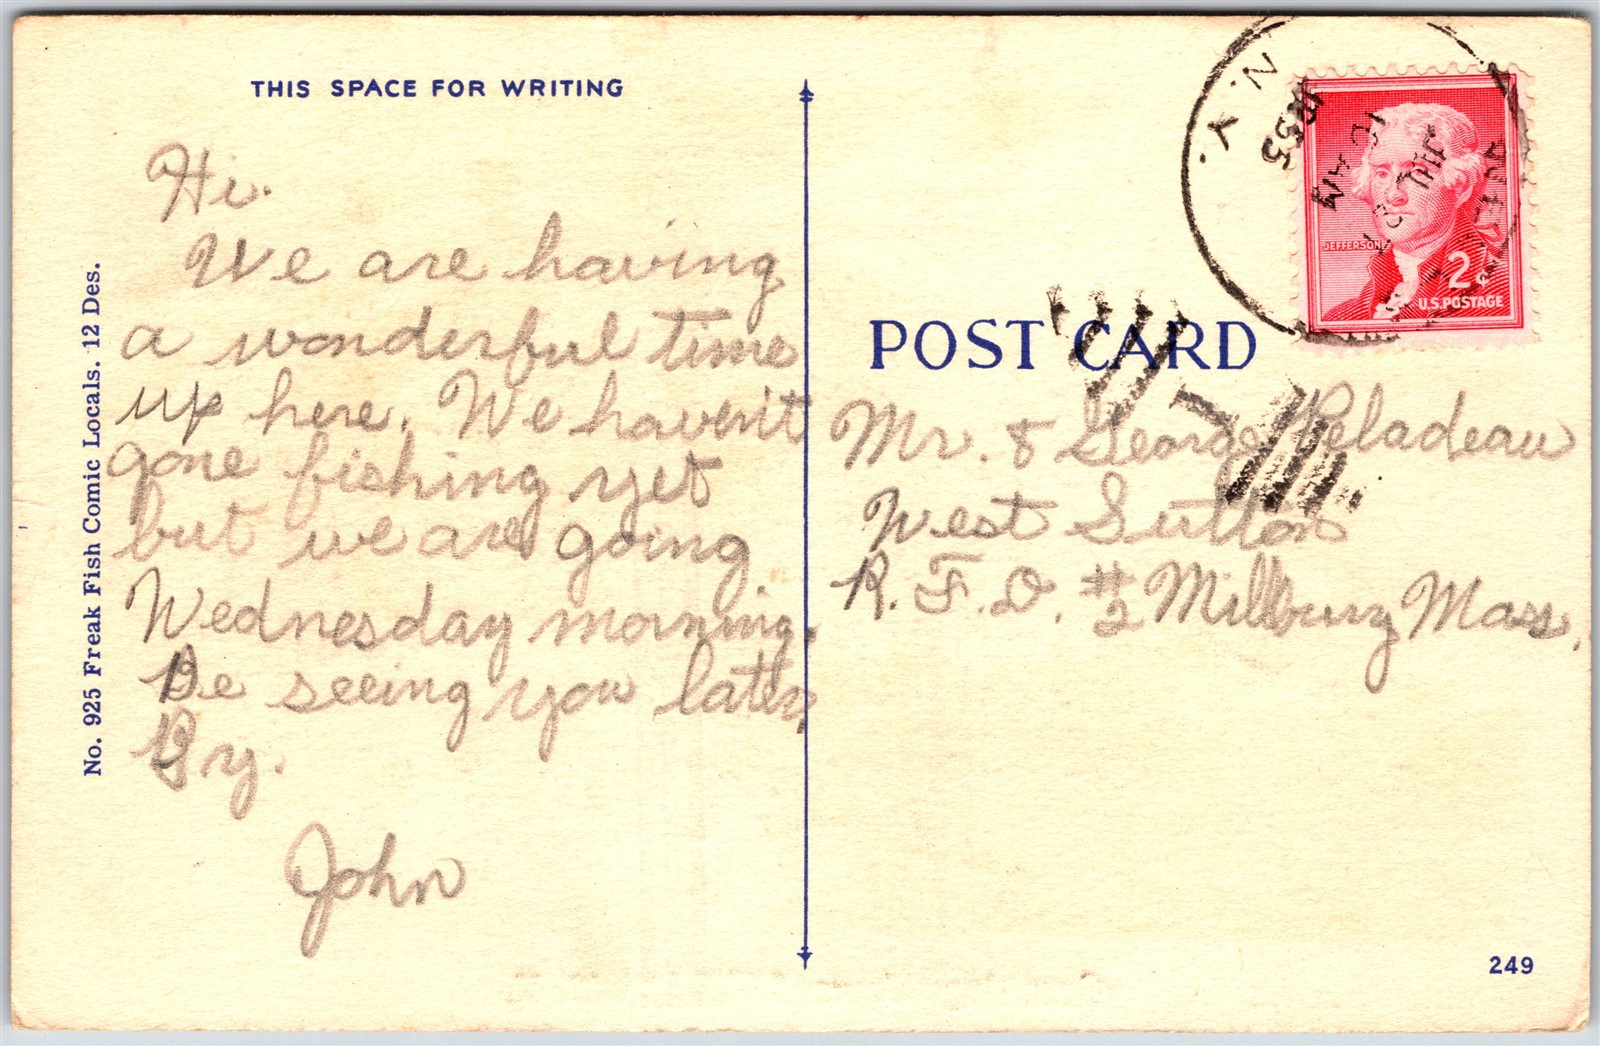 THIS SPACE FOR WRITING
Hi.
We are having
a wonderful time
up here. We haven't
gone fishing yet
but we are going
Wednesday morning.
Be seeing you later,
By.
John
No. 925 Freak Fish Comic Locals. 12 Des.
N.Y.
1955
10 AM
JUL
JEFFERSON
2¢
U.S. POSTAGE
POST CARD
Mr. & George Peladeau
West Sutton
R.F.D. #2 Millbury Mass.
249